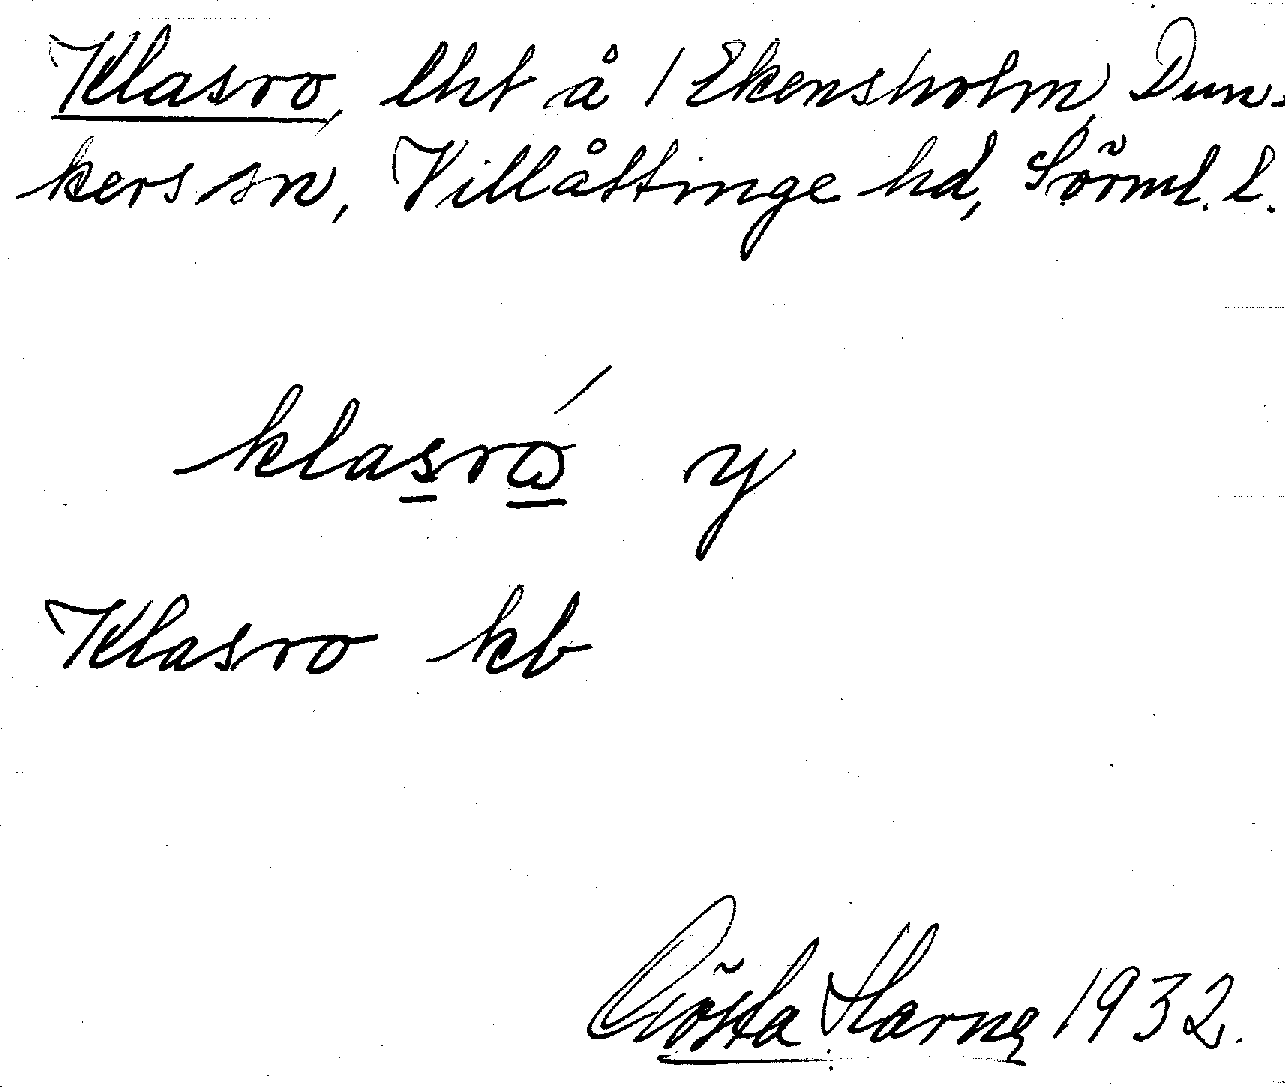 Klasro, lht å 1 Ekensholm, Dun-
kers sn, Villåttinge hd, Sörml. l.
klasrώ y
Klasro kb
Gösta Harne 1932.